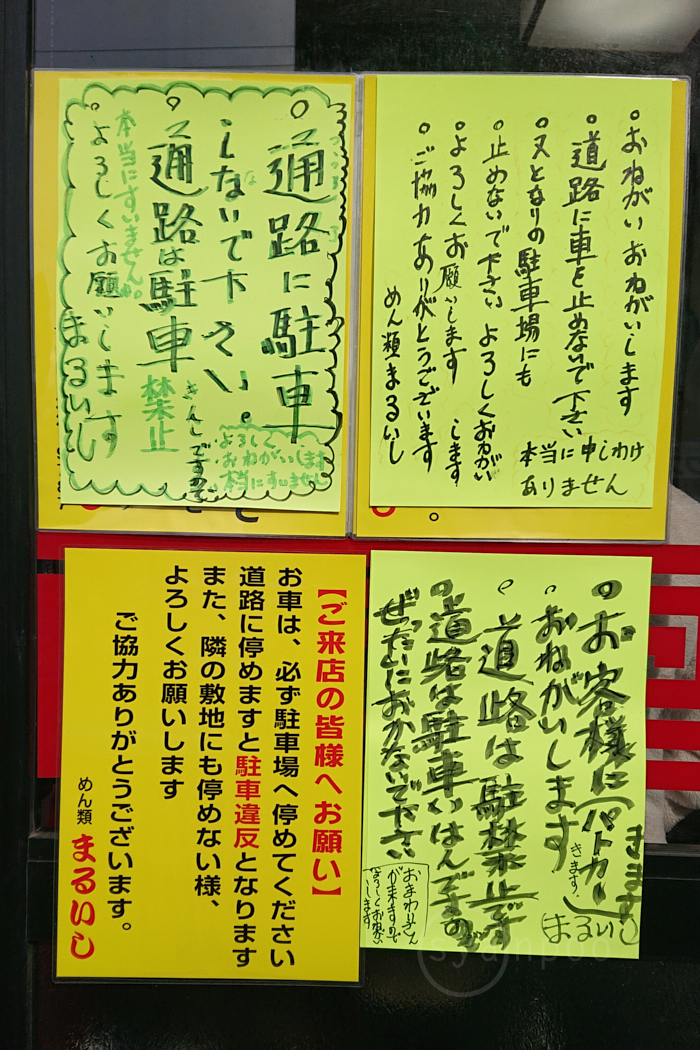 ○おねがいおねがいします
○道路に車を止めないで下さい
本当に申しわけ
ありません
○又となりの駐車場にも
○止めないで下さい よろしくおねがい
します
○よろしくお願いします
○ご協力ありがとうございます
めん類まるいし
○通路に駐車
しないで下さい。
○通路は駐車禁止
きんしですので
本当にすいません。
○よろしくお願いします
まるいし
よろしく
おねがいします
本当にすいません
○お客様に(パトカー)
きます
きます。
○おねがいします
○道路は駐禁止です
○道路は駐車いはんですので
ぜったいにおかないで下さい
おまわりさん
が来ますので
よろしくお願い
します
まるいし
【ご来店の皆様へお願い】
お車は、必ず駐車場へ停めてください
道路に停めますと駐車違反となります
また、隣の敷地にも停めない様、
よろしくお願いします
ご協力ありがとうございます。
めん類 まるいし
syunpoo